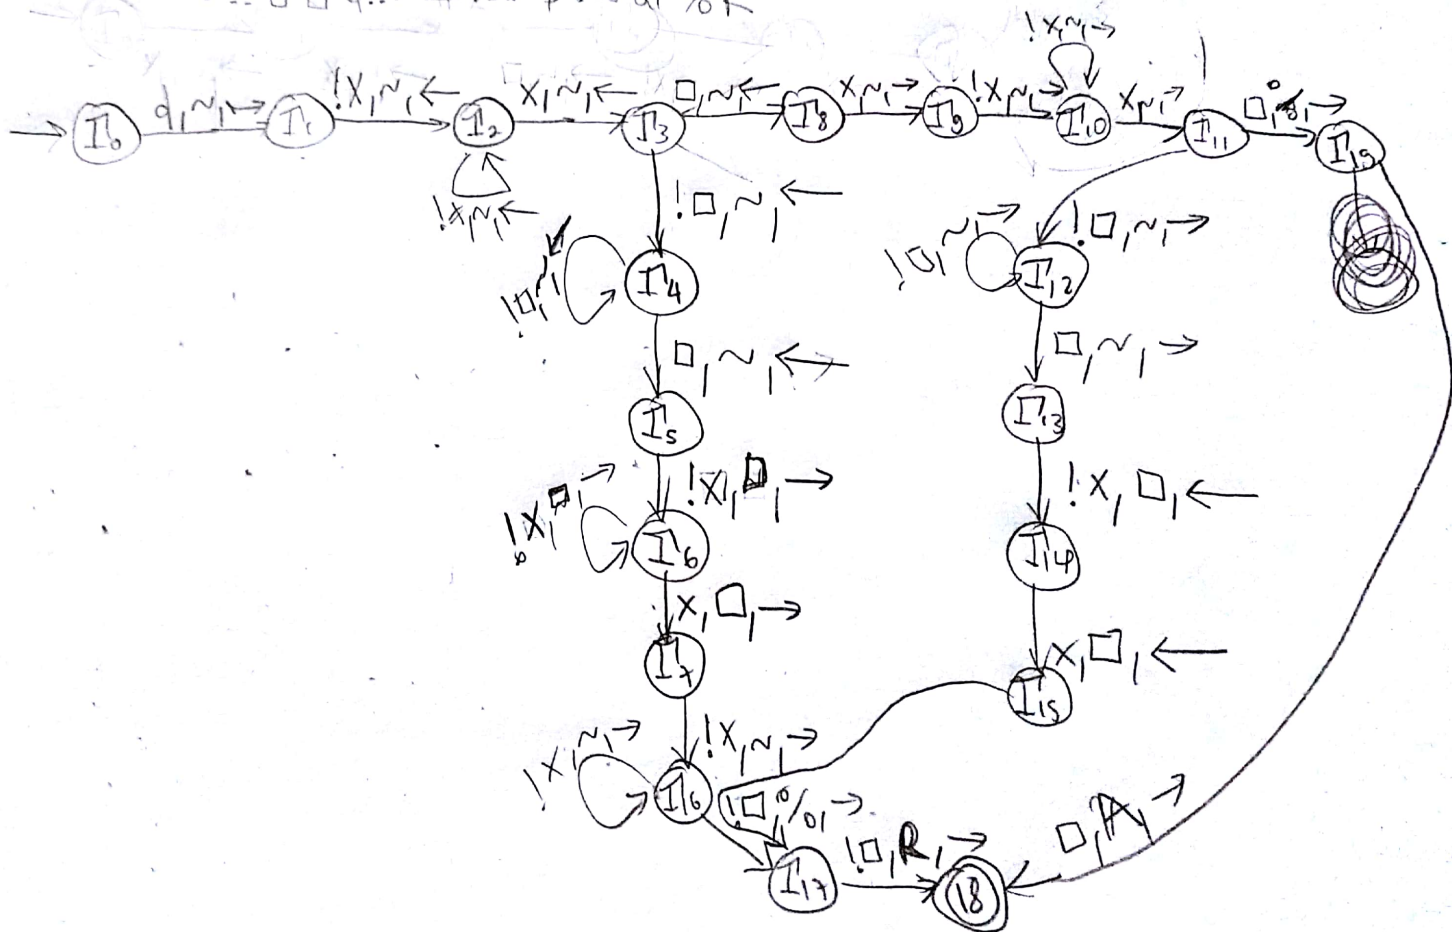 !x,~,→
→ I₀ q,~,→ I₁ !x,~,← I₂ x,~,← I₃ □,~,← I₈ x,~,→ I₉ !x,~,→ I₁₀ x,~,→ I₁₁ □, ,→ I₁₉
!x,~,←
!□,~,←
!□,~,→ !□,~,→
!□,~, I₄ I₁₂
□,~,← □,~,→
I₅ I₁₃
!x,□,→ !x,□,→ !x,□,←
I₆ I₁₄
x,□,→ x,□,←
I₇ I₁₅
!x,~,→ !x,~,→
I₁₆ !□,%,→ !□,R,→ □,A,→
I₁₇ 18